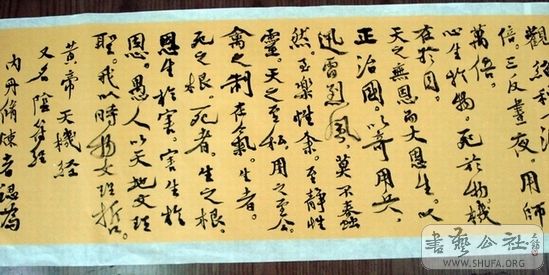 倍。三反晝夜。用師
萬倍。
心生於物。死於物。機
在於目。
天之無恩而大恩生。以
正治國。以奇用兵。
迅雷烈風。莫不蠢
然。至樂性余。至靜性
靈。天之至私。用之至公。
禽之制在氣。生者。
死之根。死者。生之根。
恩生於害。害生於
恩。愚人以天地文理
聖。我以時物文理哲。
黃帝天機經
又名陰符經
內丹脩煉者認為
書藝公社
WWW.SHUFA.ORG